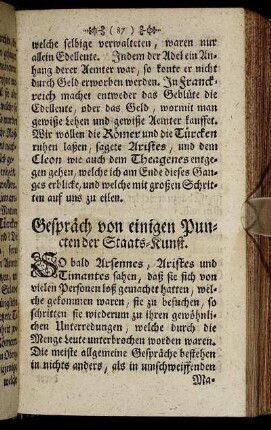 ( 87 )
welche selbige verwalteten, waren nur
allein Edelleute. Indem der Adel ein An-
hang derer Aemter war, so konte er nicht
durch Geld erworben werden. In Franck-
reich machet entweder das Geblüte die
Edelleute, oder das Geld, wormit man
gewiße Lehen und gewiße Aemter kauffet.
Wir wollen die Römer und die Türcken
ruhen laßen, sagete Aristes, und dem
Cleon wie auch dem Theagenes entge-
gen gehen, welche ich am Ende dieses Gan-
ges erblicke, und welche mit großen Schrit-
ten auf uns zu eilen.
Gespräch von einigen Pun-
cten der Staats-Kunst.
SO bald Arsennes, Aristes und
Timantes sahen, daß sie sich von
vielen Personen loß gemachet hatten, wel-
che gekommen waren, sie zu besuchen, so
schritten sie wiederum zu ihren gewöhnli-
chen Unterredungen, welche durch die
Menge Leute unterbrochen worden waren.
Die meiste allgemeine Gespräche bestehen
in nichts anders, als in umschweiffenden
Ma-